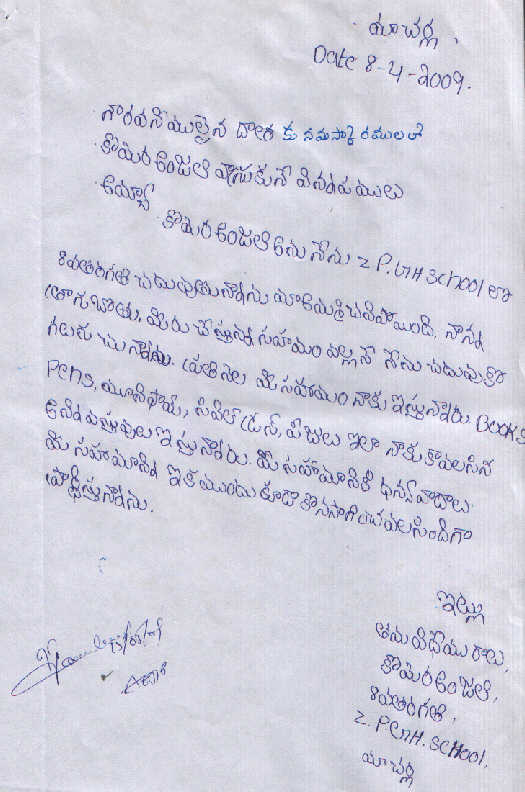 మాచర్ల,
Date 8-4-2009.
గౌరవనీయులైన దాతల కు నమస్కారములతో
కొమెర అంజలి వ్రాసుకునే విన్నపములు
అయ్యా
కొమెర అంజలి అను నేను Z P.GH School లో
8వతరగతి చదువుతున్నాను మా అమ్మ చనిపోయింది. నాన్న
త్రాగుబోతు, మీరు చేస్తున్న సహాయం వల్లనే నేను చదువుకో
గలుగు చున్నాను. ప్రతి నెల మీ సహాయం నాకు ఇస్తున్నారు. Books
Pens, యూనిఫామ్, సివిల్ డ్రస్, ఫీజులు ఇలా నాకు కావలసిన
అన్ని వస్తువులు ఇస్తున్నారు. మీ సహాయానికి ధన్యవాదాలు.
మీ సహాయాన్ని ఇక ముందు కూడా కొనసాగించవలసిందిగా
ప్రార్థిస్తున్నాను.
ఇట్లు
తమ విధేయురాలు,
కొమెర అంజలి,
8వతరగతి,
Z.P GH. School,
మాచర్ల